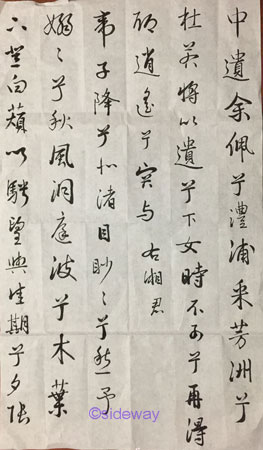 中遺余佩兮澧浦采芳洲兮
杜若將以遺兮下女時不可兮再得
聊逍遙兮容与 右湘君
帝子降兮北渚目眇々兮愁予
嫋々兮秋風洞庭波兮木葉
下登白薠以騁望與佳期兮夕張
©sideway